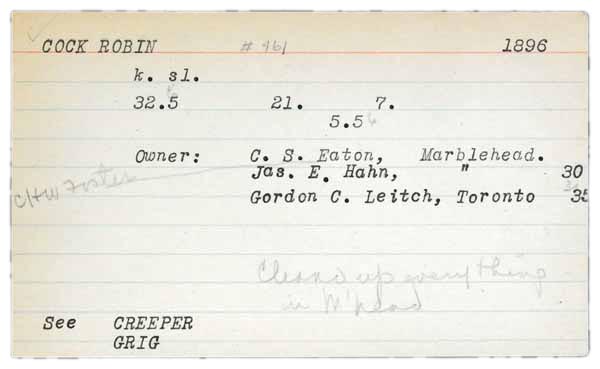 COCK ROBIN # 461 1896
k. sl.
32.5 21. 7.
5.5
Owner: C. S. Eaton, Marblehead.
Jas. E. Hahn, " 30
CHW Foster
Gordon C. Leitch, Toronto 35
Cleaned up everything
in M'head
See CREEPER
GRIG